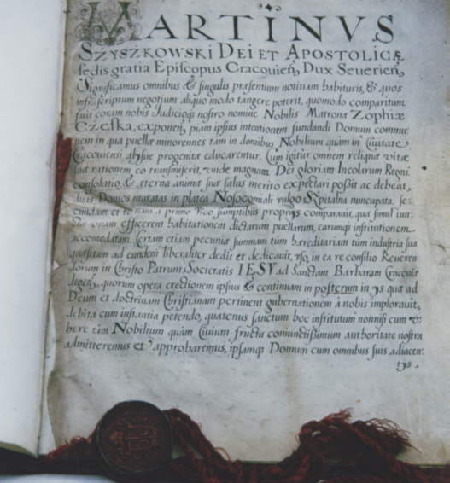 MARTINVS
SZYSZKOWSKI DEI ET APOSTOLICÆ
sedis gratia Episcopus Cracouień, Dux Seuerień,
Significamus omnibus & singulis præsentium notitiam habituris, & quos
infrascriptum negotium aliquo modo tangere poterit, quomodo comparitum
fuit coram nobis Nobilis Matrona Zophia
Czeska, exponeń, piam ipsius intentionem fundandi Domum commu
nem in qua puellæ minorennes tam in donibus, Nobilium quàm in Ciuitate
Cracouiensi progenitæ educarentur. Cum igitur omnem reliquæ vitæ
suæ rationem eo transmiserit, vnde magnam Dei gloriam Incolarum Regni
consolatio & æterna salus merito expectari possit ac debeat,
Domos in platea Nosocomiali vulgo Szpitalna nuncupata, se
cundam et primo suo sumptibus proprijs comparauit, quæ simul iun
efficerent habitationem dictarum puellarum, earumq institutionem
accomodatam. Certam etiam pecuniæ summam tum hæreditariam tum industria sua
quæsitam ad eundem liberaliter dedit et dedicauit, vsq in ea re consilio Reueren
dorum in Christo Patrum Societatis IESV ad Sanctam Barbaram Cracouiæ
quorum opera erectionem ipsius & continuam in posterum in ys quæ ad
Deum et doctrinam Christianam pertinent gubernationem à nobis implorauit,
debita cum instantia petendo, quatenus sanctum hoc institutum nonnisi cum
tàm Nobilium quàm Ciuium fructu coniunctissimum authoritate nostra
admitteremus et approbaremus, ipsamq Domum cum omnibus suis adiacen: